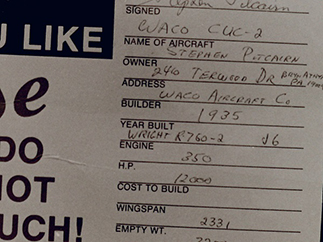 SIGNED
WACO CUC-2
NAME OF AIRCRAFT
STEPHEN PITCAIRN
OWNER
240 TERWOOD DR BRYN ATHYN
PA
ADDRESS
WACO AIRCRAFT Co
BUILDER
1935
YEAR BUILT
WRIGHT R760-2 J6
ENGINE
350
H.P.
12000
COST TO BUILD
WINGSPAN
2331
EMPTY WT.
U LIKE
se
DO
NOT
UCH!